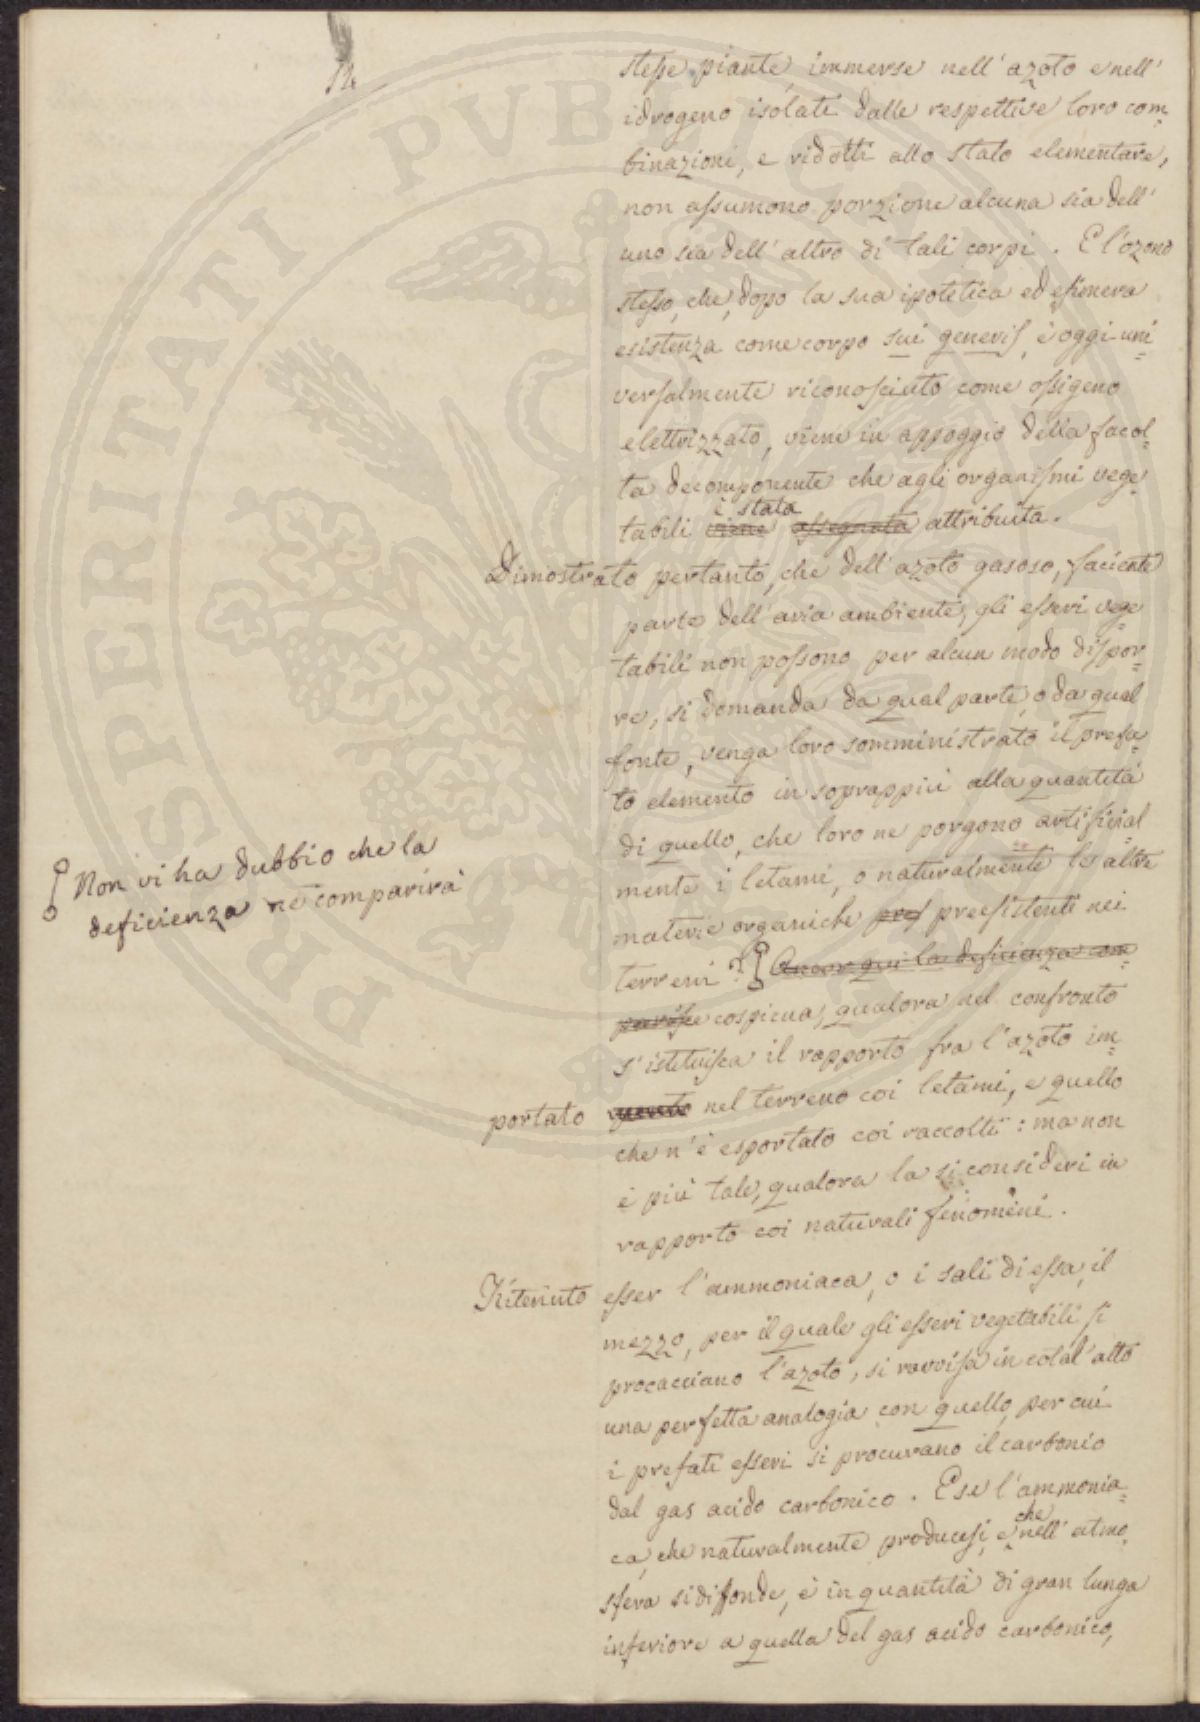 14
stesse piante immerse nell'azoto e nell'
idrogeno isolati dalle respettive loro com=
binazioni, e ridotti allo stato elementare,
non assumono porzione alcuna sia dell'
uno sia dell'altro di tali corpi. E l'ozono
stesso, che, dopo la sua ipotetica ed efimera
esistenza come corpo sui generis, è oggi uni=
versalmente riconosciuto come ossigeno
elettrizzato, viene in appoggio della facol=
tà decomponente che agli organismi vege=
è stata
tabili viene assegnata attribuita.
Dimostrato pertanto, che dell'azoto gasoso, faciente
parte dell'aria ambiente, gli esseri vege=
tabili non possono per alcun modo dispor=
re, si domanda da qual parte, o da qual
fonte, venga loro somministrato il prefa=
to elemento in soprappiù alla quantità
di quello, che loro ne porgono artificial=
mente i letami, o naturalmente le altre
materie organiche pres preesistenti nei
terreni? Ancor qui la deficienza com=
Non vi ha dubbio che la
deficienza ne comparirà
parisce cospicua, qualora nel confronto
s'istituisca il rapporto fra l'azoto im=
portato nel terreno coi letami, e quello
che n'è esportato coi raccolti: ma non
è più tale, qualora la si consideri in
rapporto coi naturali fenomeni.
Ritenuto esser l'ammoniaca, o i sali di essa, il
mezzo, per il quale gli esseri vegetabili si
procacciano l'azoto, si ravvisa in cotal'atto
una perfetta analogia con quello, per cui
i prefati esseri si procurano il carbonio
dal gas acido carbonico. E se l'ammonia=
che
ca, che naturalmente producesi, e nell'atmo=
sfera si diffonde, è in quantità di gran lunga
inferiore a quella del gas acido carbonico,
PUBLICAE
PROSPERITATI